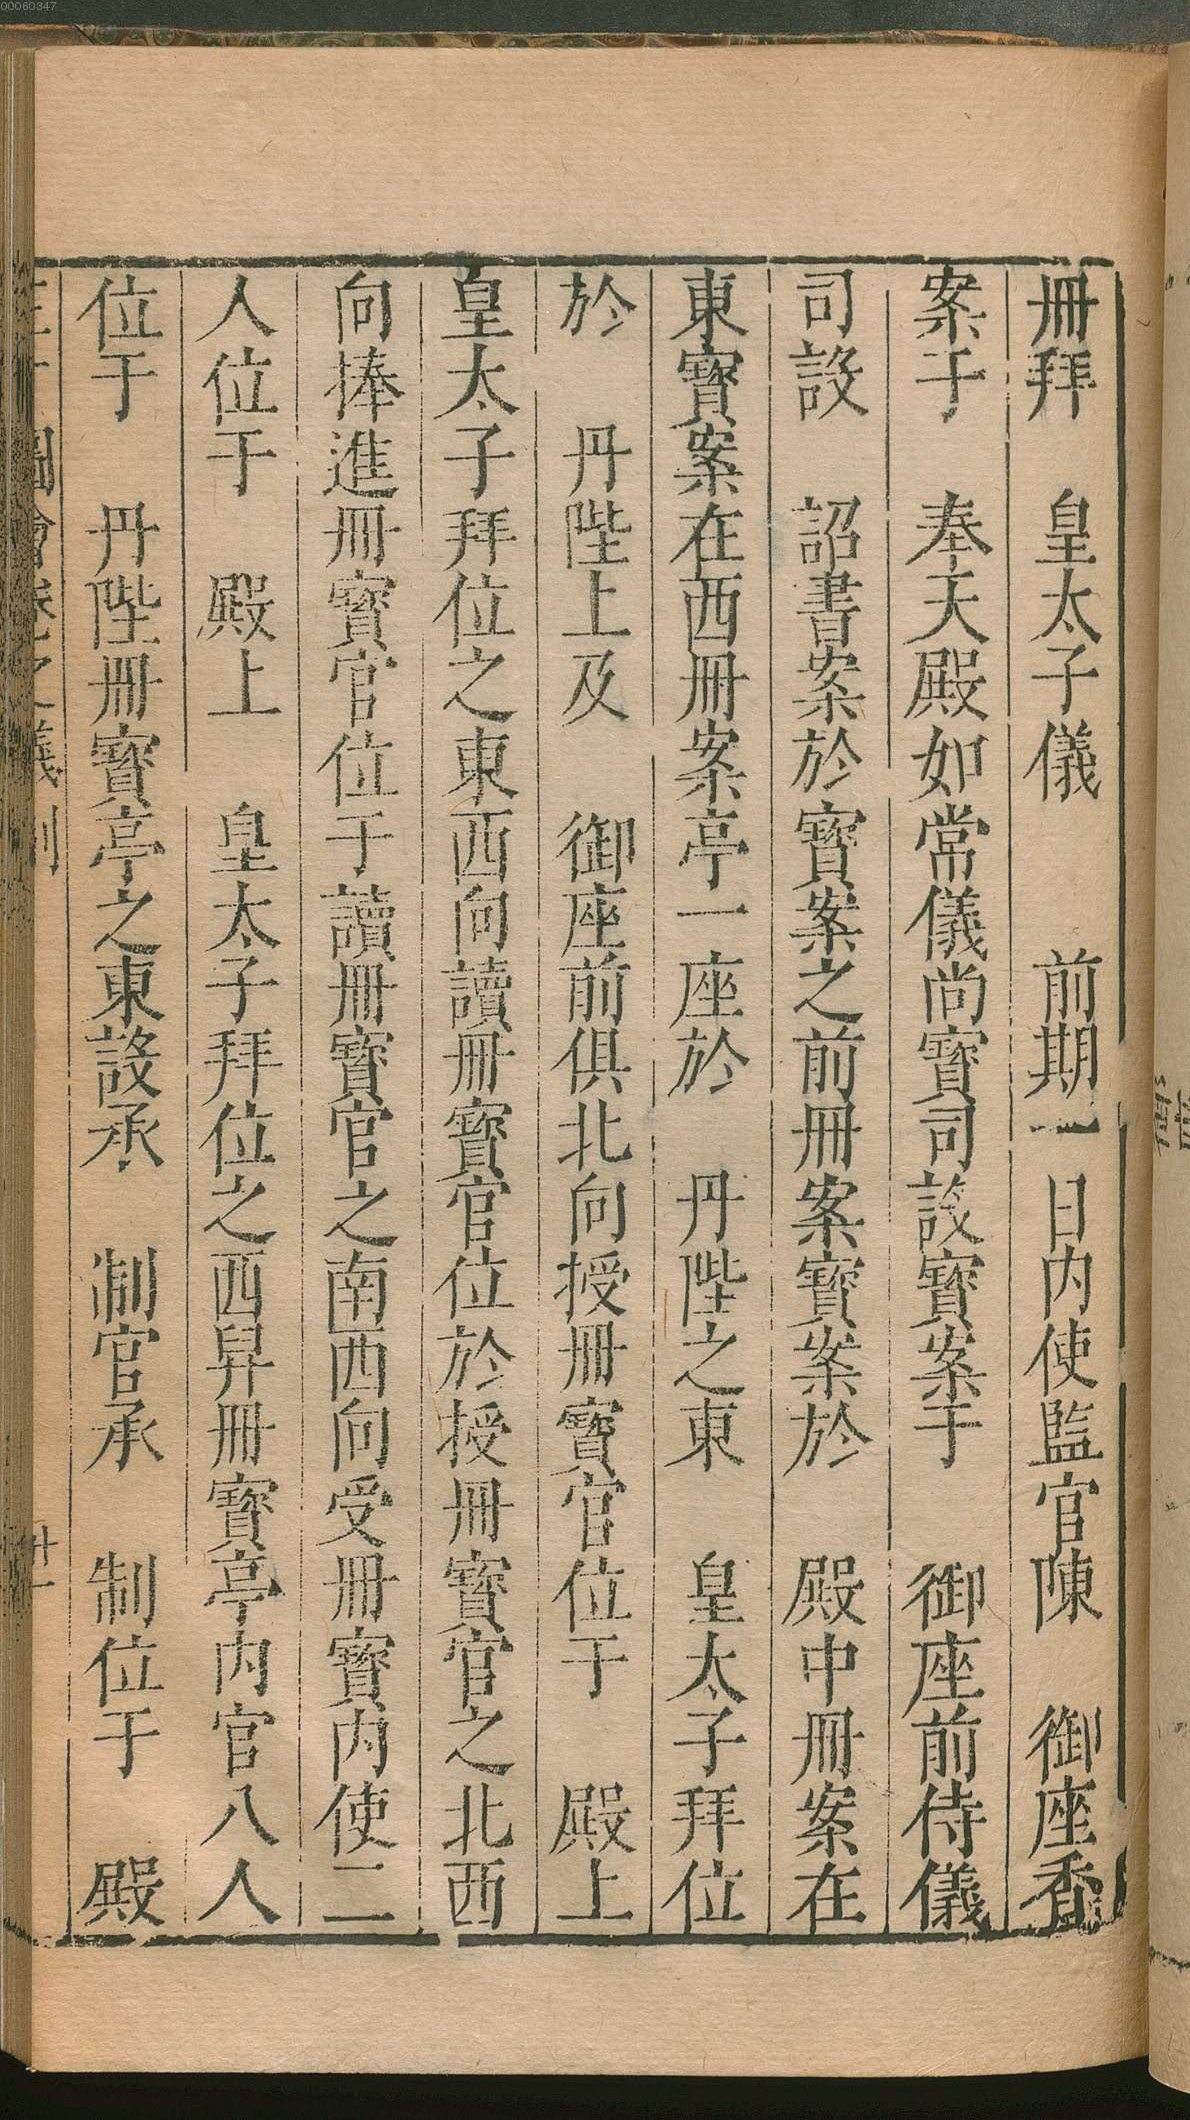 00060347
冊拜　皇太子儀　　前期一日內使監官陳　御座香
案于　奉天殿如常儀尚寶司設寶案于　御座前侍儀
司設　詔書案於寶案之前冊案寶案於　殿中冊案在
東寶案在西冊案亭一座於　丹陛之東　皇太子拜位
於　丹陛上及　御座前俱北向授冊寶官位于　殿上
皇太子拜位之東西向讀冊寶官位於授冊寶官之北西
向捧進冊寶官位于讀冊寶官之南西向受冊寶內使二
人位于　殿上　皇太子拜位之西舁冊寶亭內官八人
位于　丹陛冊寶亭之東設承　制官承　制位于　殿
圖會卷之儀制　廿一